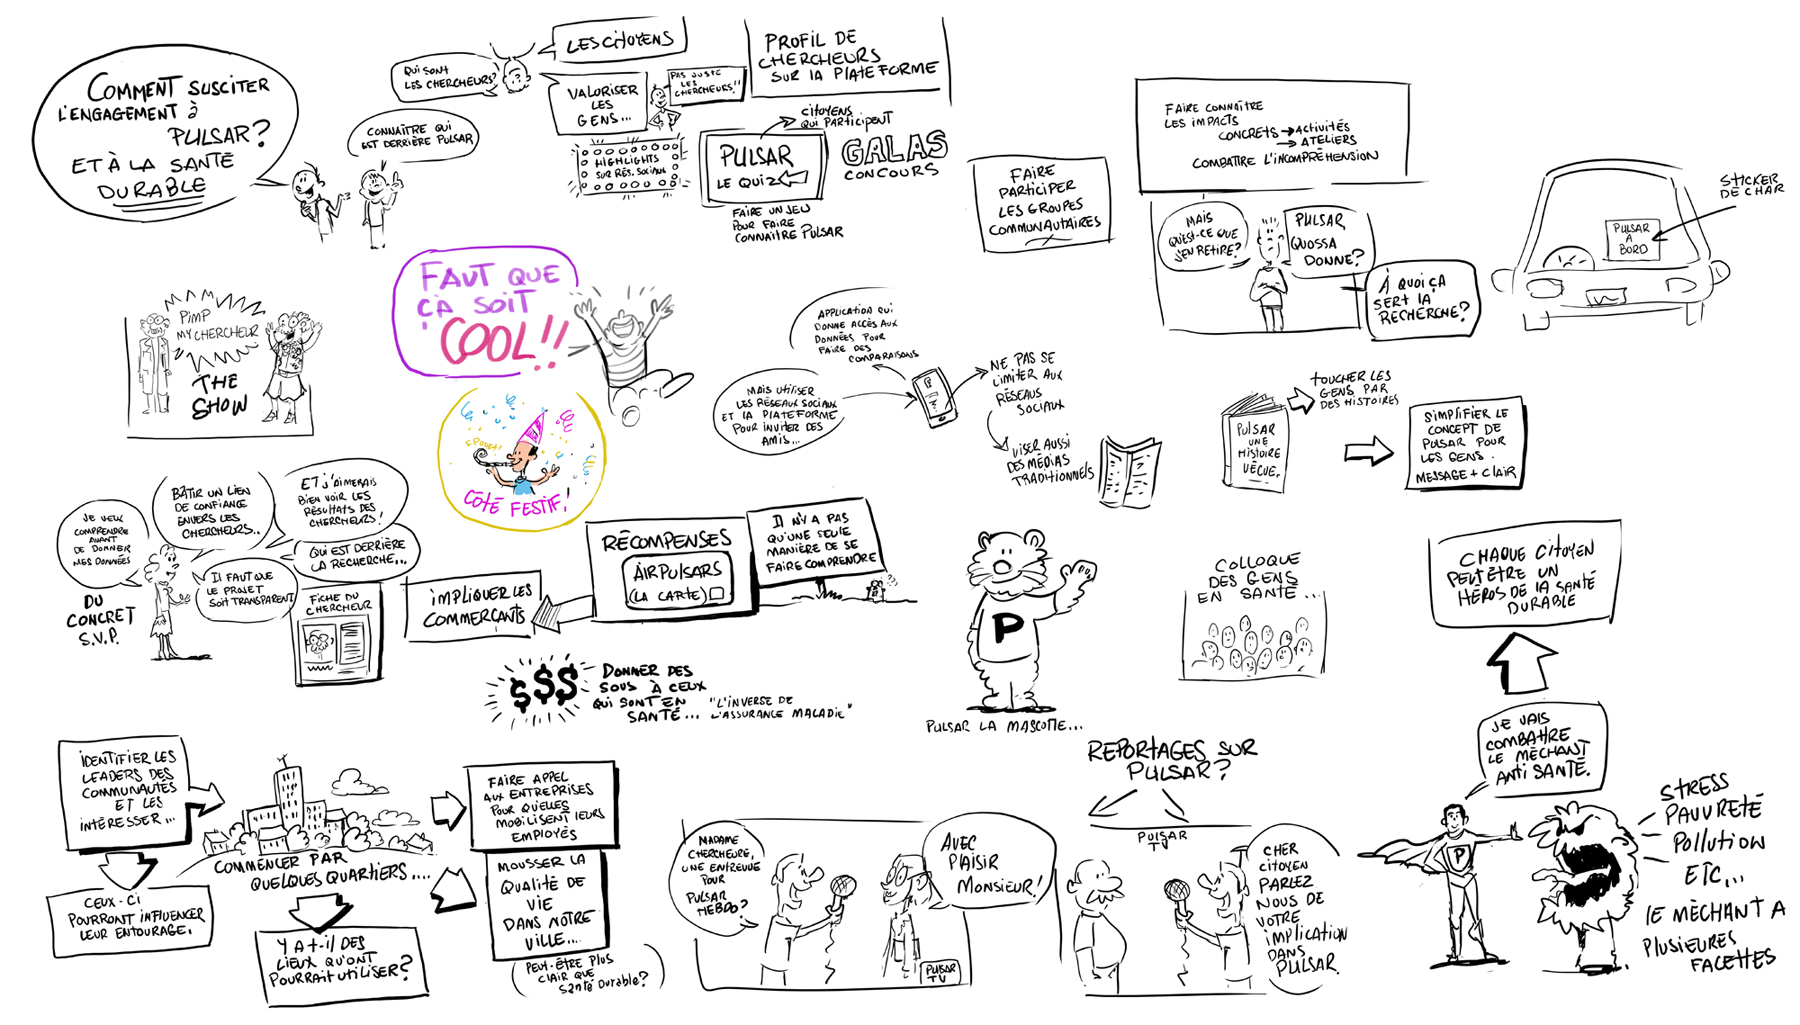 COMMENT SUSCITER
L'ENGAGEMENT À
PULSAR?
ET À LA SANTÉ
DURABLE
CONNAÎTRE QUI
EST DERRIÈRE PULSAR
QUI SONT
LES CHERCHEURS?
LES CITOYENS
VALORISER
LES
GENS...
PAS JUSTE
LES
CHERCHEURS!!
PROFIL DE
CHERCHEURS
SUR LA PLATEFORME
HIGHLIGHTS
SUR RÉS. SOCIAUX
CITOYENS
QUI PARTICIPENT
PULSAR
LE QUIZ
GALAS
CONCOURS
FAIRE UN JEU
POUR FAIRE
CONNAÎTRE PULSAR
FAIRE
PARTICIPER
LES GROUPES
COMMUNAUTAIRES
FAIRE CONNAÎTRE
LES IMPACTS
CONCRETS → ACTIVITÉS
→ ATELIERS
COMBATTRE L'INCOMPRÉHENSION
MAIS
QU'EST-CE QUE
J'EN RETIRE?
PULSAR
QUOSSA
DONNE?
À QUOI ÇA
SERT LA
RECHERCHE?
STICKER
DE CHAR
PULSAR
À
BORD
PIMP
MY CHERCHEUR
THE
SHOW
FAUT QUE
ÇÀ SOIT
COOL!!
FPOUET!
CÔTÉ FESTIF!
APPLICATION QUI
DONNE ACCÈS AUX
DONNÉES POUR
FAIRE DES
COMPARAISONS
MAIS UTILISER
LES RÉSEAUX SOCIAUX
ET LA PLATEFORME
POUR INVITER DES
AMIS...
NE PAS SE
LIMITER AUX
RÉSEAUX
SOCIAUX
VISER AUSSI
DES MÉDIAS
TRADITIONNELS
PULSAR
UNE
HISTOIRE
VÉCUE.
TOUCHER LES
GENS PAR
DES HISTOIRES
SIMPLIFIER LE
CONCEPT DE
PULSAR POUR
LES GENS.
MESSAGE + CLAIR
JE VEUX
COMPRENDRE
AVANT
DE DONNER
MES DONNÉES
BÂTIR UN LIEN
DE CONFIANCE
ENVERS LES
CHERCHEURS..
ET J'AIMERAIS
BIEN VOIR LES
RÉSULTATS DES
CHERCHEURS!
QUI EST DERRIÈRE
LA RECHERCHE...
IL FAUT QUE
LE PROJET
SOIT TRANSPARENT
DU
CONCRET
S.V.P.
FICHE DU
CHERCHEUR
IMPLIQUER LES
COMMERÇANTS
RÉCOMPENSES
AIRPULSARS
(LA CARTE)
IL N'Y A PAS
QU'UNE SEULE
MANIÈRE DE SE
FAIRE COMPRENDRE
??
$$$
DONNER DES
SOUS À CEUX
QUI SONT EN
SANTÉ...
"L'INVERSE DE
L'ASSURANCE MALADIE"
P
PULSAR LA MASCOTTE...
COLLOQUE
DES GENS
EN SANTÉ...
CHAQUE CITOYEN
PEUT ÊTRE UN
HÉROS DE LA SANTÉ
DURABLE
IDENTIFIER LES
LEADERS DES
COMMUNAUTÉS
ET LES
INTÉRESSER...
CEUX-CI
POURRONT INFLUENCER
LEUR ENTOURAGE.
COMMENCER PAR
QUELQUES QUARTIERS....
Y A T-IL DES
LIEUX QU'ONT
POURRAIT UTILISER?
FAIRE APPEL
AUX ENTREPRISES
POUR QU'ELLES
MOBILISENT LEURS
EMPLOYÉS
MOUSSER LA
QUALITÉ DE
VIE
DANS NOTRE
VILLE....
(PEUT-ÊTRE PLUS
CLAIR QUE
SANTÉ DURABLE?)
MADAME
CHERCHEURE,
UNE ENTREVUE
POUR
PULSAR
HEBDO?
AVEC
PLAISIR
MONSIEUR!
PULSAR
TV
REPORTAGES SUR
PULSAR?
PULSAR
TV
CHER
CITOYEN
PARLEZ
NOUS DE
VOTRE
IMPLICATION
DANS
PULSAR.
JE VAIS
COMBATTRE
LE MÉCHANT
ANTI SANTÉ.
P
STRESS
PAUVRETÉ
POLLUTION
ETC...
LE MÉCHANT A
PLUSIEURES
FACETTES